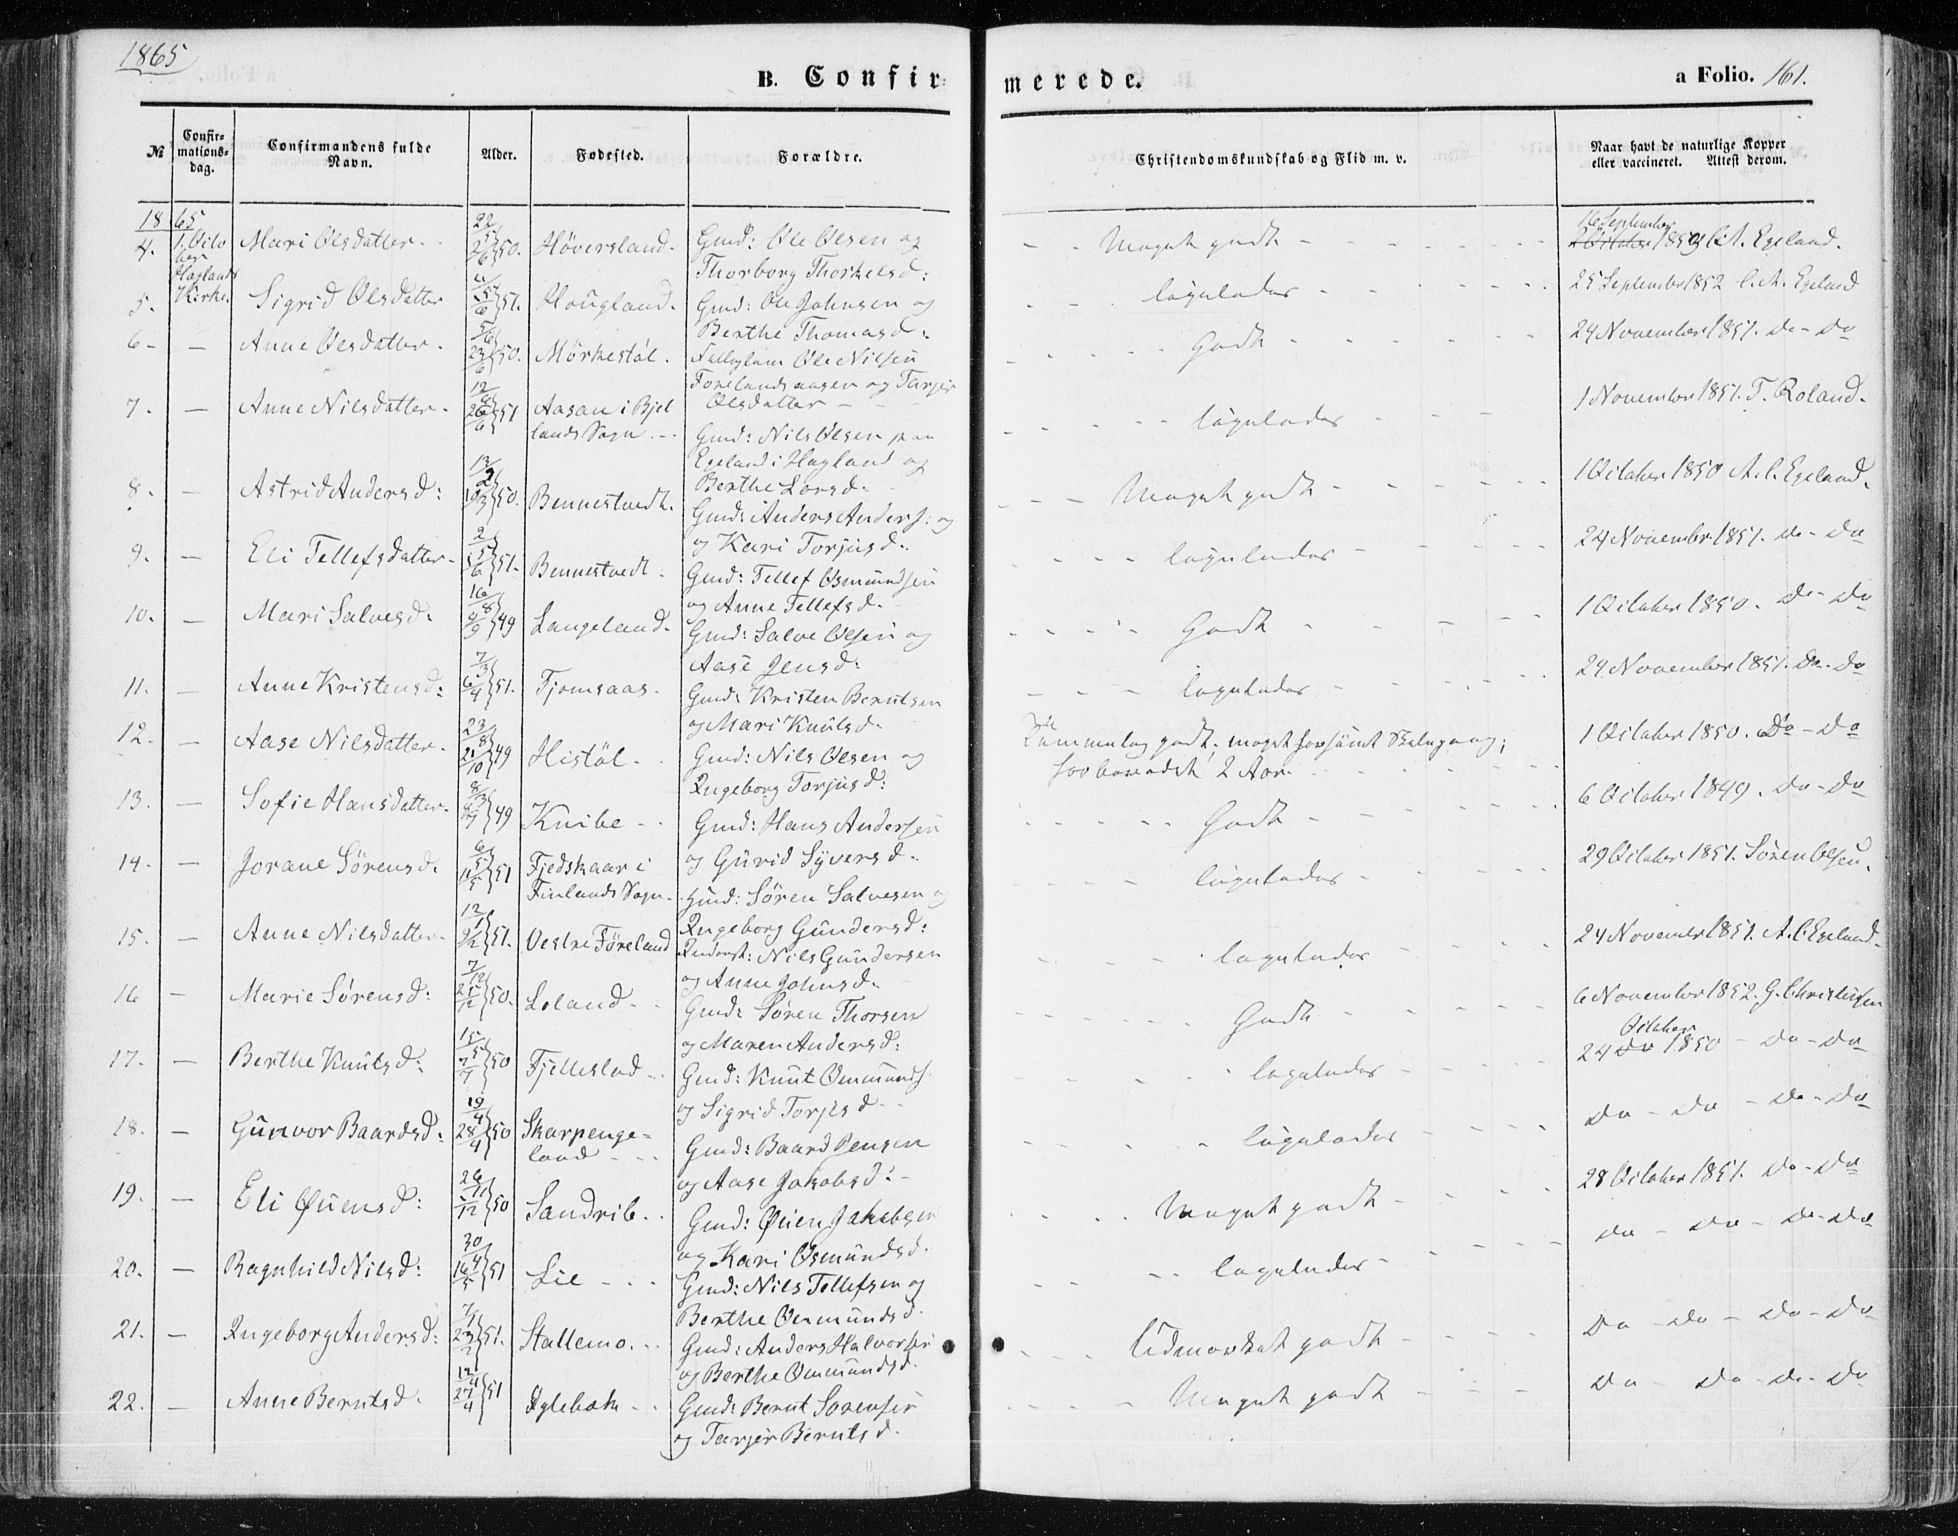 1865
B. Confirmerede.
a Folio. 161.
№
Confir-
mations-
dag.
Confirmandens fulde
Navn.
Alder.
Fødested.
Forældre.
Christendomskundskab og Flid m. v.
Naar havt de naturlige Kopper
eller vaccineret. Attest derom.
1865
4. 1 October Haglands Kirke. Mari Olsdatter. 22/5 2/6 50. Höversland. Gmd: Ole Olsen og Thorborg Thorkelsd: Meget godt 16 September 1850 A. Egeland.
5. Sigrid Olsdatter 51. Hougland. Gmd: Ole Johnsen og Berthe Thomasd: ligeledes 25 September 1852 C. A. Egeland
6 - Anne Olsdatter. 5/6 23/6 50. Mörkestöl. Ole Nilsen Forelandsaasen og Tarjer Olsdatter Godt 24 November 1851. do - do
7. - Anne Nilsdatter. 51 Aasan i Bjellands Sogn. Gmd: Nils Olsen paa Egeland i Hagland og Berthe Larsd. ligeledes 1 November 1851. T. Roland.
8. - Astrid Andersd: 13/2 10/3 50. Bennestvedt. Gmd: Anders Anders: og og Kari Torjusd. Meget godt 1 October 1850 A. C. Egeland.
9. - Eli Tellefsdatter. 51. Bennestvedt. Gmd: Tellef Osmundsen og Anne Tellefsd. ligeledes 24 November 1851. do - do
10. - Mari Salvesd: 16/8 9/9 49 Langeland. Gmd: Salve Olsen og Aase Jensd: Godt 1 October 1850. do - do
11. - Anne Kristensd: 7/3 6/4 51. Tjomsaas. Gmd: Kristen Berntsen og Mari Knutsd. ligeledes 24 November 1851. do - do
12. - Aase Nilsdatter. 23/8 21/10 49 Histöl. Gmd: Nils Olsen og Ingeborg Torjusd: godt; meget forsömt Skolegang; forberedt 2 Aar. 1 October 1850. Do - do
13. - Sofie Hansdatter. 49 Knibe Gmd: Hans Andersen og Gurid Syversd. Godt 6 October 1849. do - do
14. - Jorane Sörensd. 6/5 11/5 51 Fjedskaar i Finlands Sogn. Gmd: Sören Salvesen og Ingeborg Gundersd: ligeledes 29 October 1851. Sören Olsen.
15. - Anne Nilsdatter. 12/1 51. Vestre Föreland Inderst: Nils Gundersen og Anne Johnsd. ligeledes 24 November 1851. A. C. Egeland.
16 - Marie Sörensd: 7/12 21/12 50. Loland. Gmd: Sören Thorsen og Maren Andersd: Godt 6 November 1852. G. Christensen
17. - Berthe Knutsd: 15/5 7/7 50 Fjellestad Gmd: Knut Ommunds. og Sigrid Torjusd ligeledes 24 October 1850 - do - do
18. - Gunvor Baardsd: 19/4 28/4 50 Skarpengeland Gmd: Baard Jensen og Aase Jakobsd: ligeledes do - do - do - do
19. - Eli Øuensd: 26/11 50 Sandrib. Gmd: Øuen Jakobsen og Kari Osmundsd. Meget godt 28 October 1851. do - do
20. - Ragnhild Nilsd: 30/4 16/5 51 Lie Gmd: Nils Tellefsen og Berthe Ommundsd. ligeledes do - do - do - do
21. - Ingeborg Andersd: 7/1 51. Stallemo. Gmd: Anders Halvorsen og Berthe Ommundsd. Udmærket godt do - do - do - do
22. - Anne Berntsd. 12/4 27/4 51 Øglebæk Gmd: Bernt Sorensen og Tarjer Berntsd. Meget godt do - do - do - do